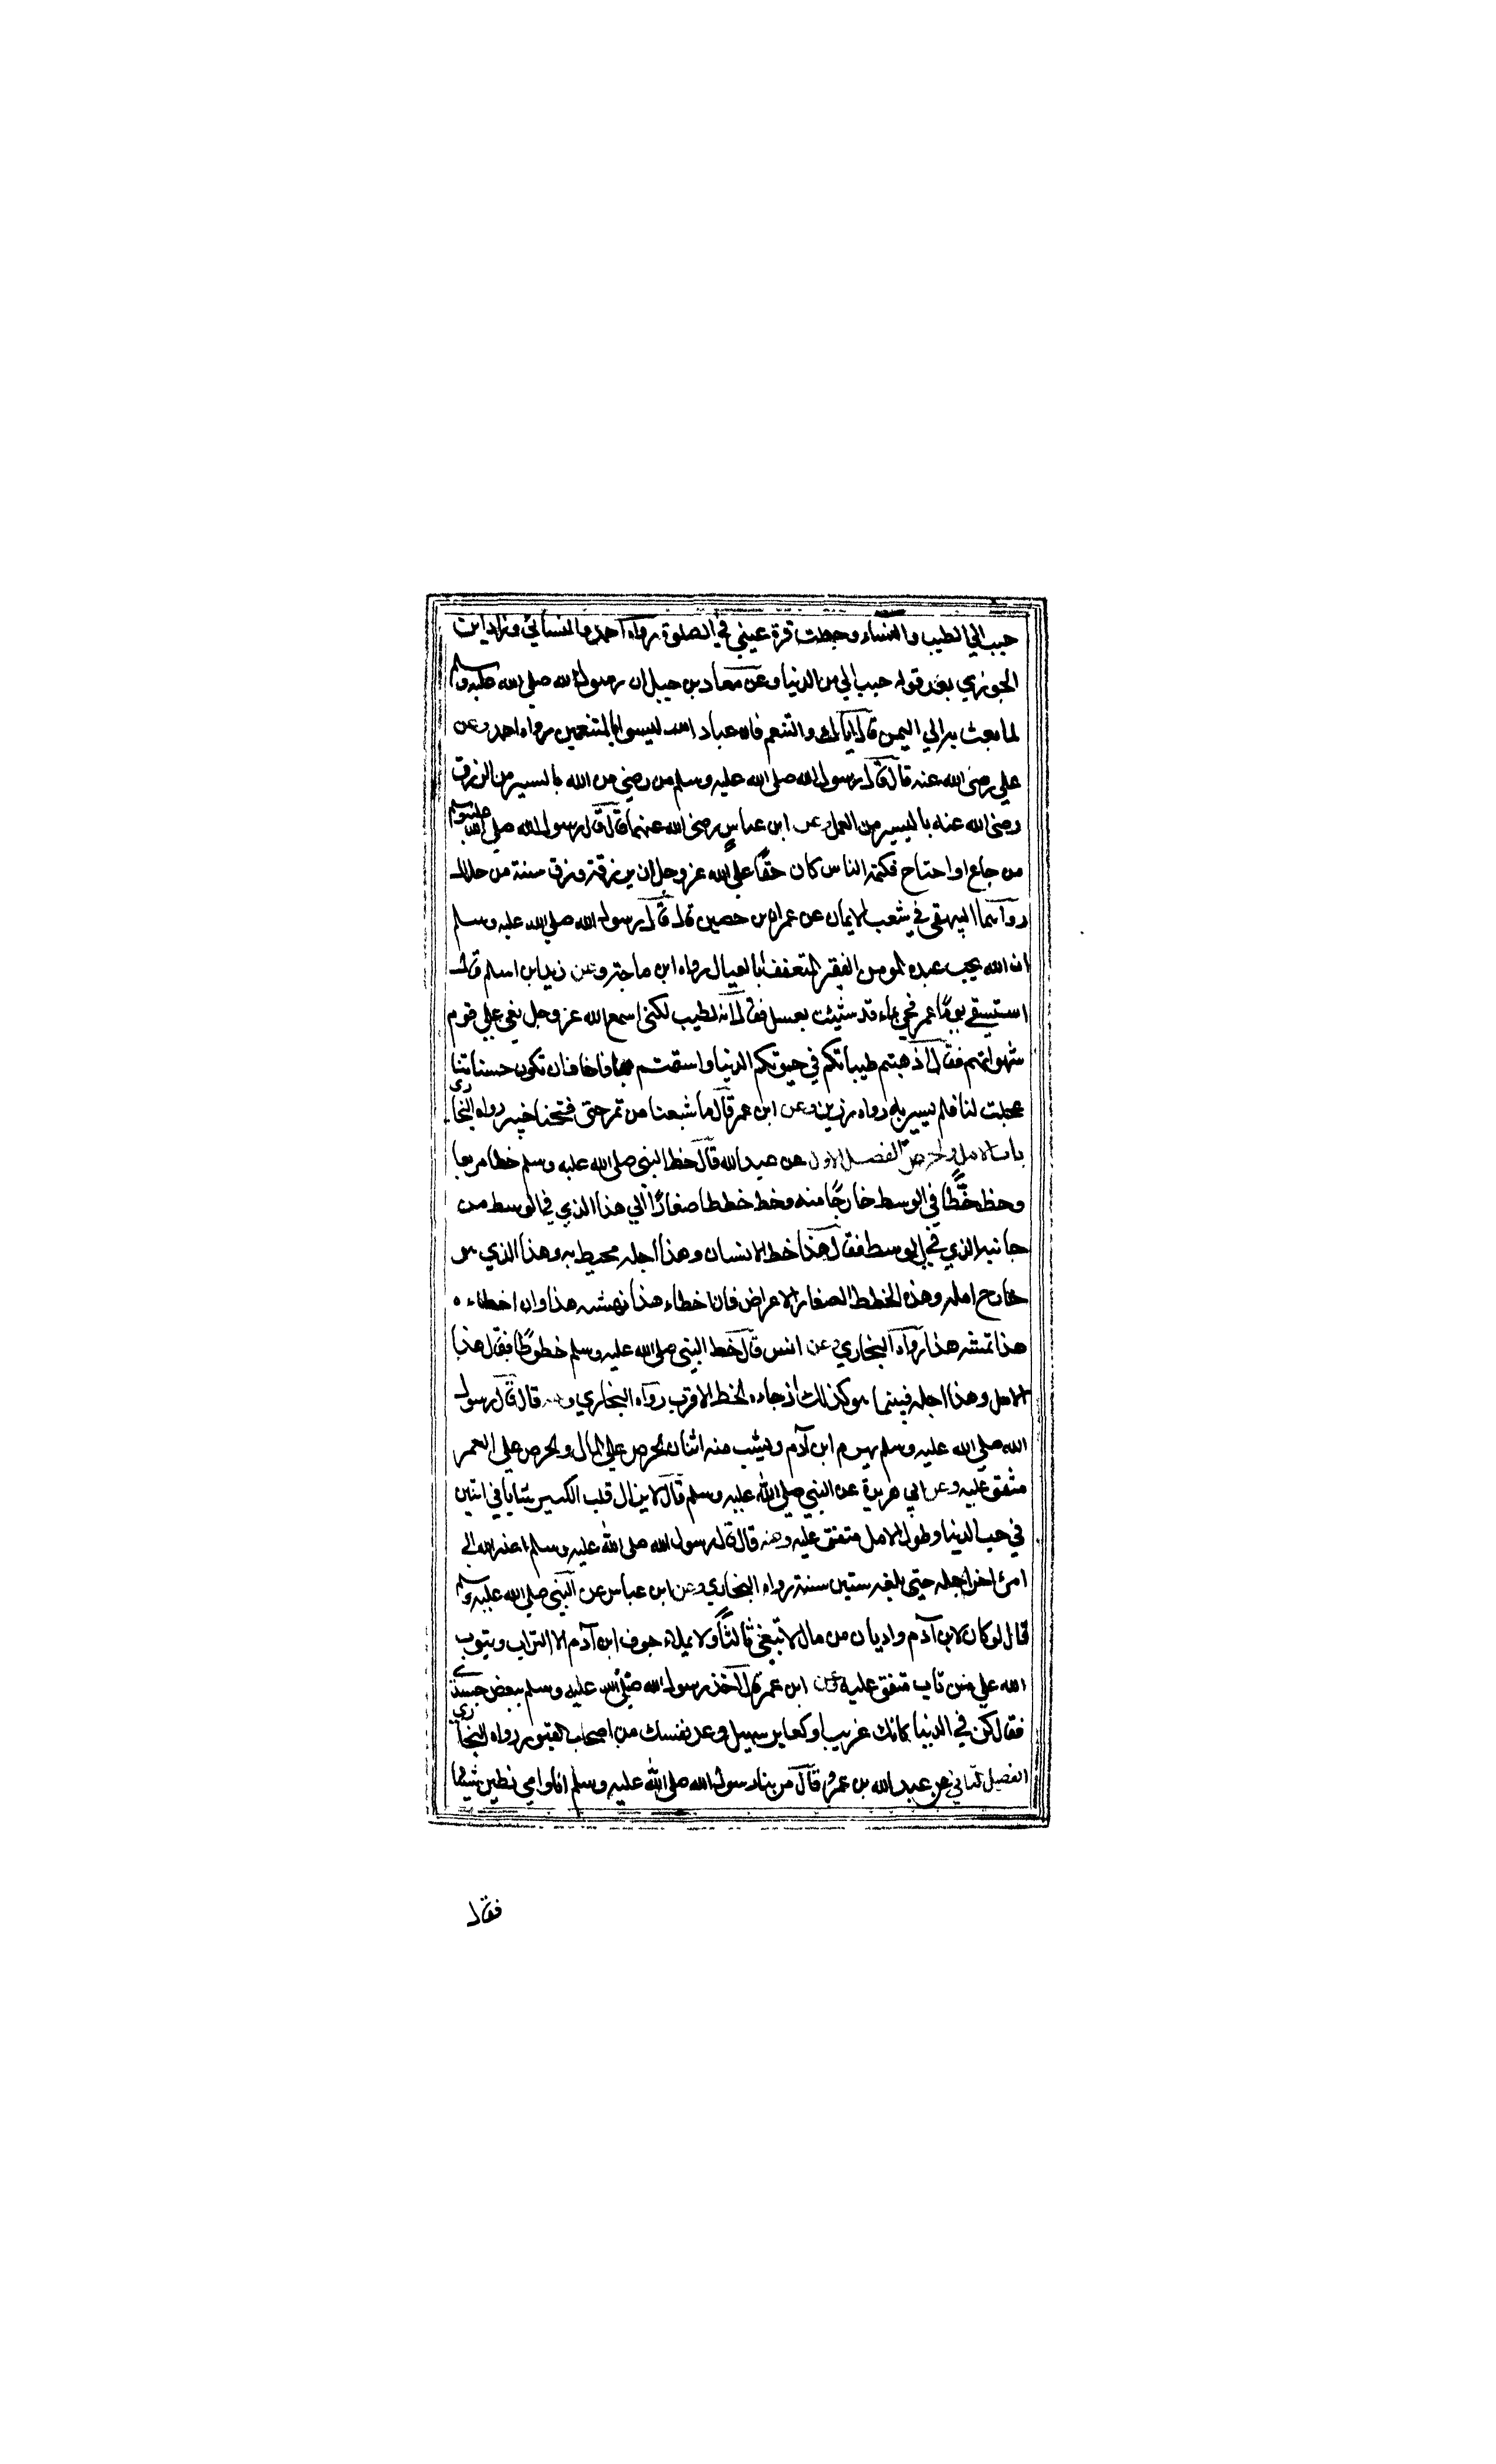 حبب الي الطيب والنساء وجعلت قرة عيني في الصلوة رواه احمد والنسائي وزاد ابن
الجوزي بعد قوله حبب الي من الدنيا وعن معاذ بن جبل ان رسول الله صلي الله عليه وسلم
لما بعث به الي اليمن قال اياك والتنعم فان عباد الله ليسوا بالمتنعمين رواه احمد وعن
علي رضي الله عنه قال قال رسول الله صلي الله عليه وسلم من رضي من الله باليسير من الرزق
رضي الله عنه باليسير من العمل وعن ابن عباس رضي الله عنهما قال قال رسول الله صلي الله عليه وسلم
من جاع او احتاج فكتمه الناس كان حقًا علي الله عز وجل ان يرزقه رزق سنة من حلال
رواهما البيهقي في شعب الايمان عن عمران بن حصين قال قال رسول الله صلي الله عليه وسلم
ان الله يحب عبده المومن الفقير المتعفف ابا العيال رواه ابن ماجة وعن زيد ابن اسلم قال
استسقي يومًا عمر فجي بماء قد شيبت بعسل فقال انه لطيب لكني اسمع الله عز وجل نعي علي قوم
شهواتهم فقال اذهبتم طيباتكم في حيوتكم الدنيا واستمتعتم بها فاخاف ان تكون حسناتنا
عجلت لنا فلم يسير به رواه رزين وعن ابن عمر قال ما شبعنا من تمر حتي فتحنا خيبر رواه البخاري
باب الامل والحرص الفصل الاول عن عبد الله قال خط النبي صلي الله عليه وسلم خطا مربعا
وخط خطًّا في الوسط خارجًا منه وخط خططا صغارًا الي هذا الذي في الوسط من
جانبه الذي في الوسط فقال هذا خط الانسان وهذا اجله محيط به وهذا الذي هو
خارج امله وهذه الخطط الصغار الاعراض فان اخطاء هذا نهشه هذا وان اخطاءه
هذا نهشه هذا رواه البخاري وعن انس قال خط النبي صلي الله عليه وسلم خطوطًا فقال هذا
الامل وهذا اجله فبينما هو كذلك اذ جاءه الخط الاقرب رواه البخاري وعنه قال قال رسول
الله صلي الله عليه وسلم يهرم ابن آدم ويشب منه اثنان الحرص علي المال والحرص علي العمر
متفق عليه وعن ابي هريرة عن النبي صلي الله عليه وسلم قال لا يزال قلب الكبير شابا في اثنين
في حب الدنيا وطول الامل متفق عليه وعنه قال قال رسول الله صلي الله عليه وسلم اعذر الله الي
امرئ اخر اجله حتي بلغه ستين سنة رواه البخاري وعن ابن عباس عن النبي صلي الله عليه وسلم
قال لو كان لابن آدم واديان من مال لابتغي ثالثًا ولا يملاء جوف ابن آدم الا التراب ويتوب
الله علي من تاب متفق عليه وعن ابن عمر قال اخذ رسول الله صلي الله عليه وسلم ببعض جسدي
فقال كن في الدنيا كانك غريب او كعابر سبيل وعد نفسك من اصحاب القبور رواه البخاري
الفصل الثاني عن عبد الله بن عمرو قال مر بنا رسول الله صلي الله عليه وسلم انا وامي نطين شيئا
فقال